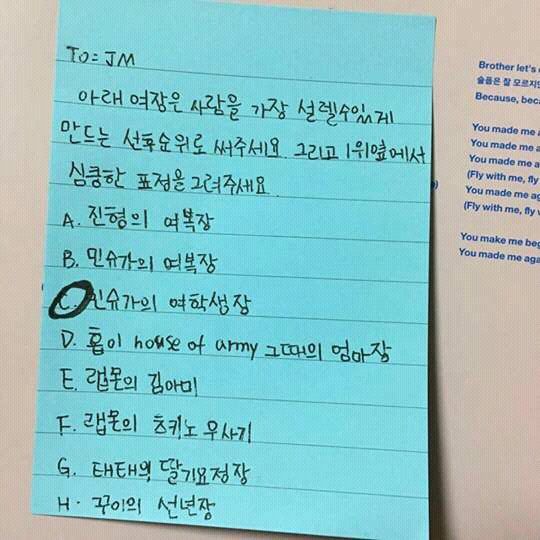 To = JM
아래 여장은 사람을 가장 설렐수있게
만드는 선후순위로 써주세요. 그리고 1위옆에서
심쿵한 표정을 그려주세요
A. 진형의 여복장
B. 민슈가의 여복장
C. 민슈가의 여학생장
D. 홉이 house of army 그때의 엄마장
E. 랩몬의 김아미
F. 랩몬의 츠키노 우사기
G. 태태의 딸기요정장
H. 꾸이의 선년장
Brother let's
슬픔은 잘 모르지만
Because, bec
You made me a
You made me a
You made me a
(Fly with me, fly
You made me ag
(Fly with me, fly w
You make me beg
You made me aga